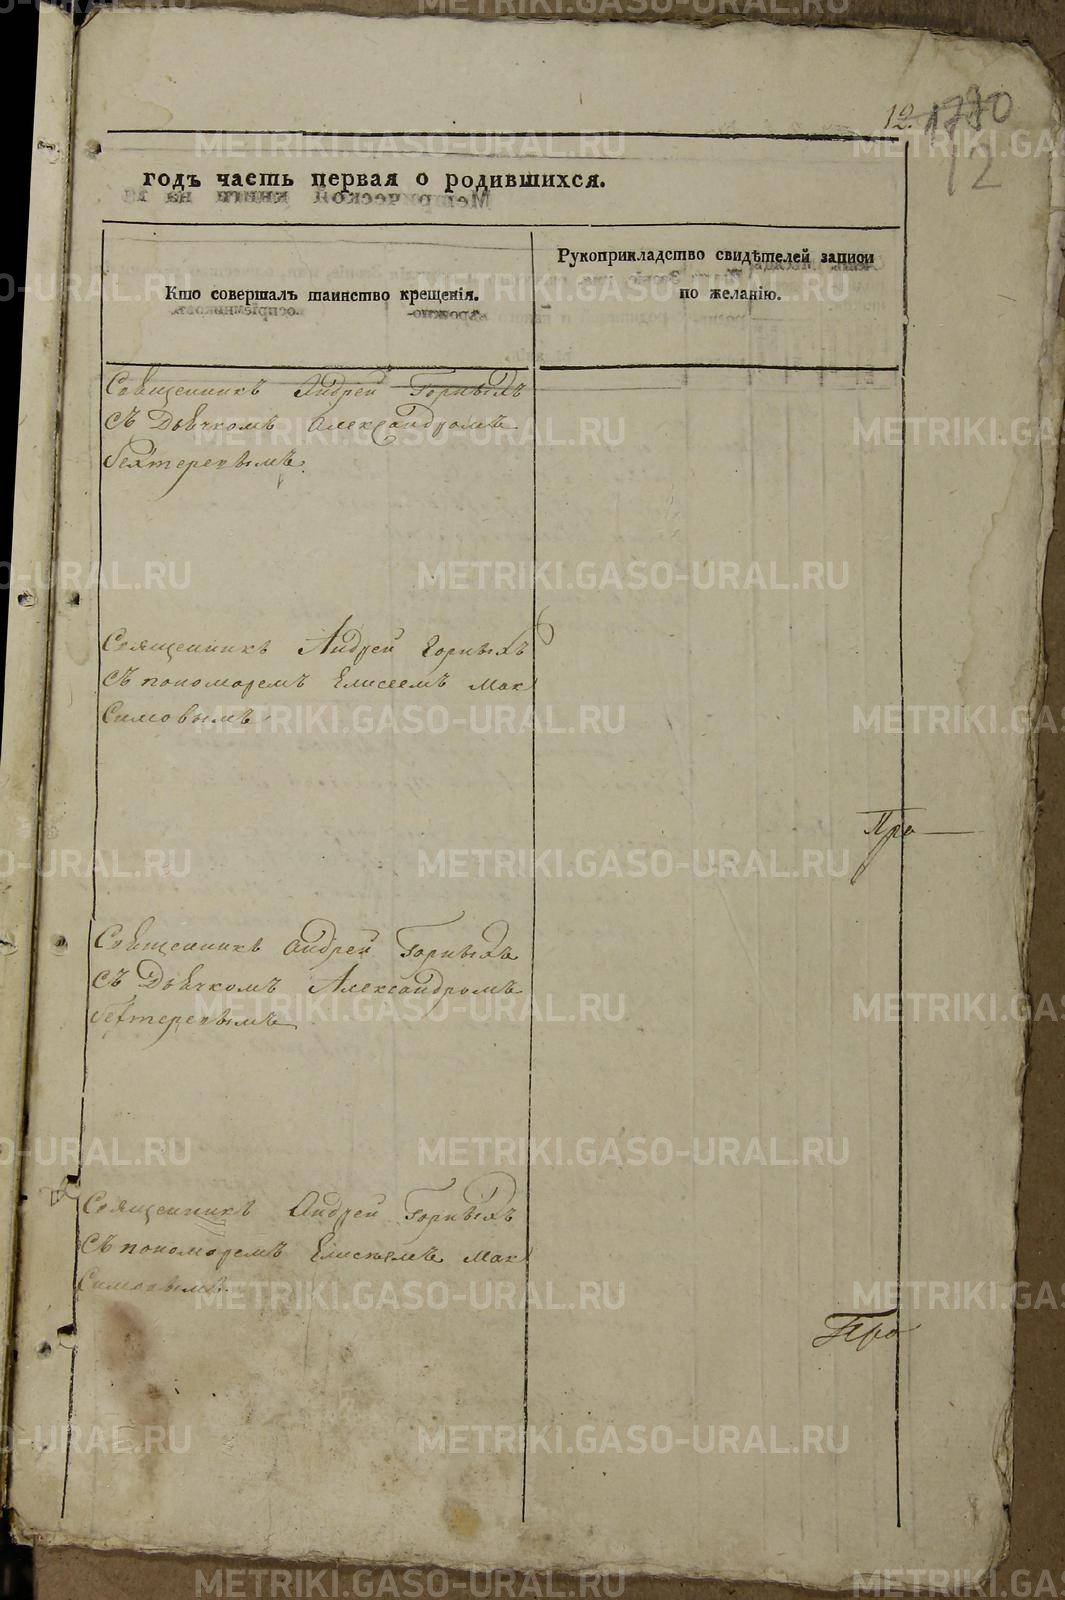 12. 1770
12
годъ часть первая о родившихся.
Кто совершалъ таинство крещенія.
Рукоприкладство свидѣтелей записи
по желанію.
Священникъ Андрей Горныхъ
съ Дьячкомъ Александромъ
Бехтеревымъ.
Священникъ Андрей Горныхъ
съ пономоремъ Елисеемъ Мак
Симовымъ
Пра
Священникъ Андрей Горныхъ
съ Дьячкомъ Александромъ
Бехтеревымъ
Священникъ Андрей Горныхъ
съ пономоремъ Елисѣемъ Мак
Симовымъ.
Пра
METRIKI.GASO-URAL.RU